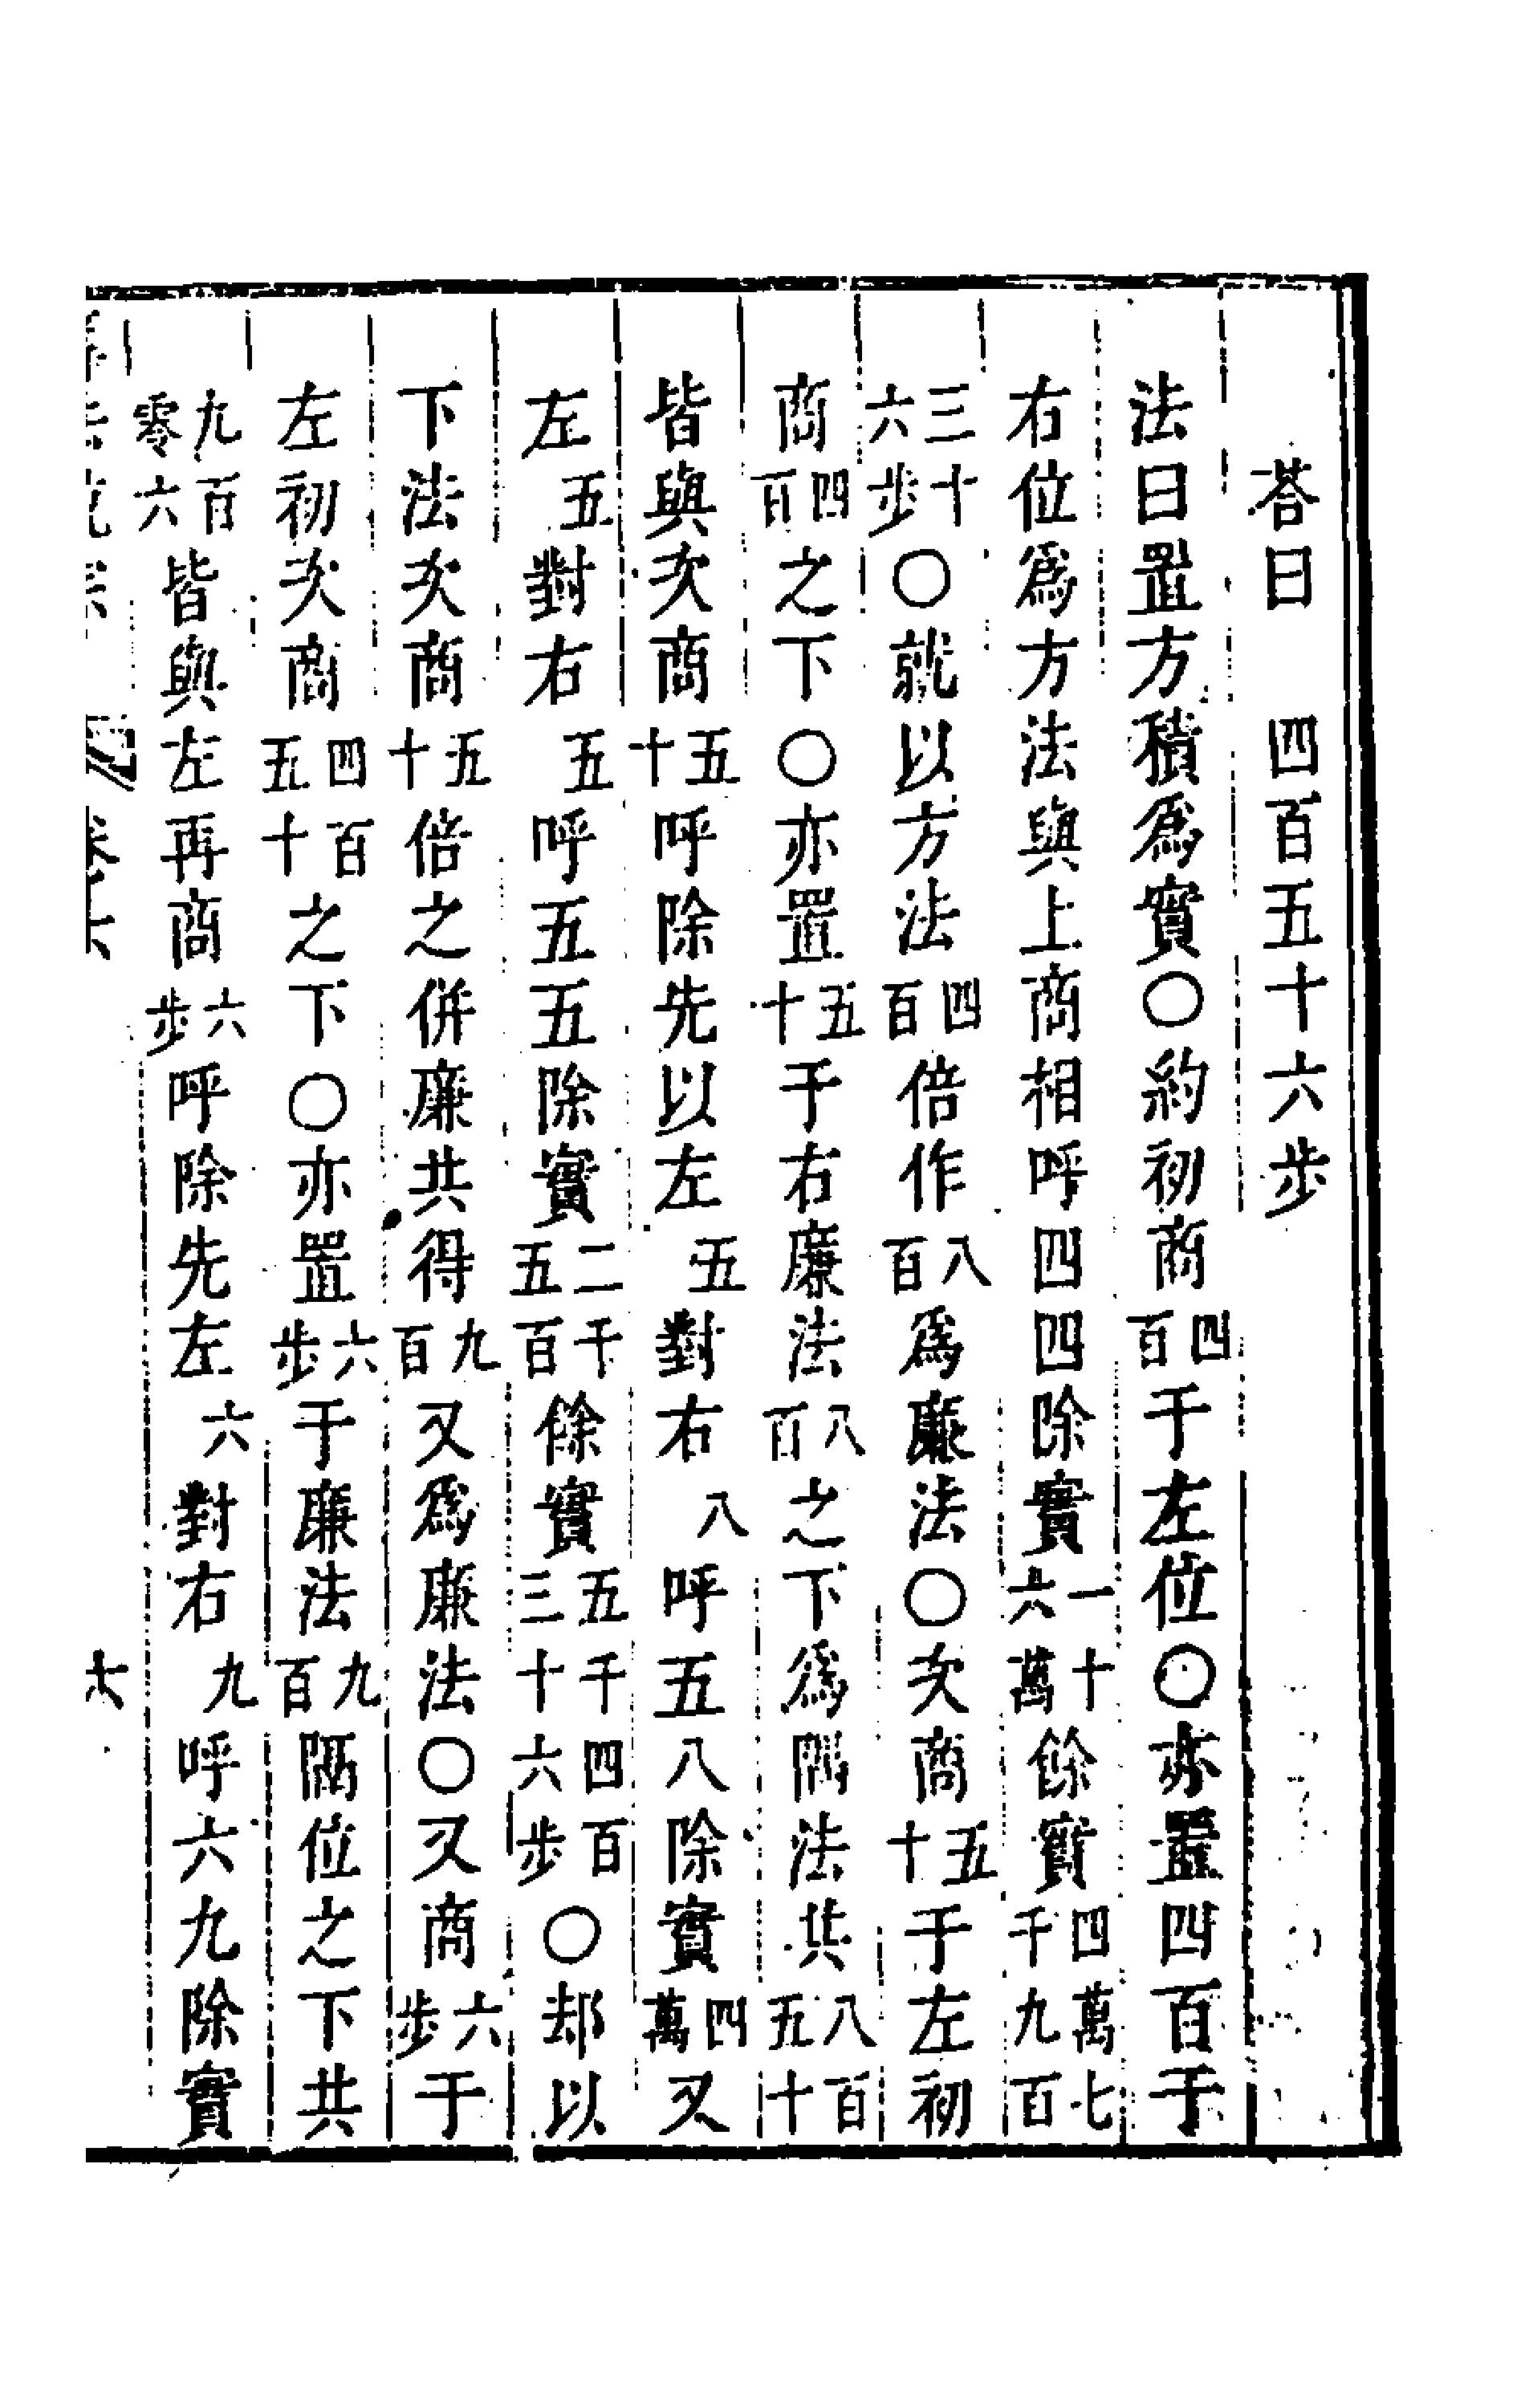 荅曰　四百五十六步
法曰置方積爲實〇約初商四百于左位〇亦置四百于
右位爲方法與上商相呼四四除實一十六萬餘實四萬七千九百
三十六步〇就以方法四百倍作八百爲廉法〇次商五十于左初
商四百之下〇亦置五十于右廉法八百之下爲隅法共八百五十
皆與次商五十呼除先以左五對右八呼五八除實四萬又
左五對右五呼五五除實二千五百餘實五千四百三十六步〇却以
下法次商五十倍之併廉共得九百又爲廉法〇又商六步于
左初次商四百五十之下〇亦置六步于廉法九百隅位之下共
九百零六皆與左再商六步呼除先左六對右九呼六九除實
卷六
六